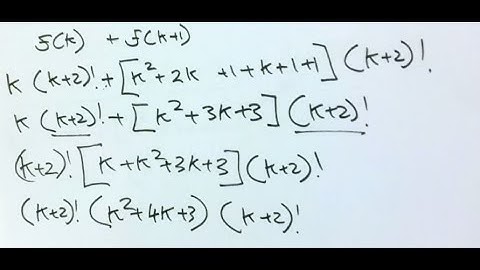 f(k) + f(k+1)
k (k+2)! + [k² + 2k +1 + k + 1 + 1] (k+2)!
k (k+2)! + [k² + 3k + 3] (k+2)!
(k+2)! [k + k² + 3k + 3] (k+2)!
(k+2)! (k² + 4k + 3) (k+2)!